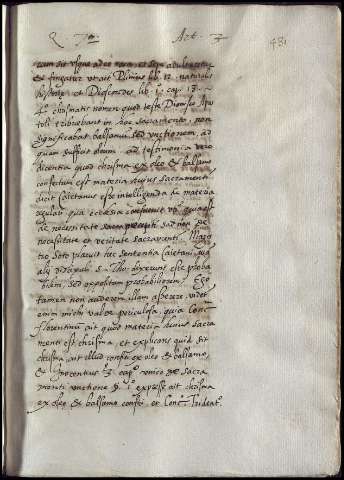 Q. 72. Art. 3 431
tum sit usque adeo rara et sepe adulteretur
& fingatur ut ait Plinius lib. 12. naturalis
historiæ et Dioscorides lib. 1. cap. 18.
chrismatis nomen quod teste Dionysio Apos
toli tribuebant in hoc sacramento, non
significabat balsamum sed unctionem, ad
quam sufficit oleum. ad testimonia vero
dicentia quod chrisma ex oleo & balsamo
confectum est materia huius sacramenti
dicit Caietanus esse intelligenda de materia
regulari qua ecclesia consuevit uti quia est
de necessitate præcepti sed non de
necessitate et veritate sacramenti. Magis
tro Soto placuit hæc sententia Caietani, qua
alij discipuli S. Tho. dixerunt esse proba
bilem, sed oppositam probabiliorem. Ego
tamen non auderem illam asserere. videt
enim mihi valde periculosa, quia Conc.
florentinum ait quod materia huius sacra
menti est chrisma, et explicans quid sit
chrisma ait illud confici ex oleo & balsamo,
& Inocentius 3. cap. unico de sacra
unctione § 1. expresse ait chrisma
ex oleo & balsamo confici. et Conc. Trident.